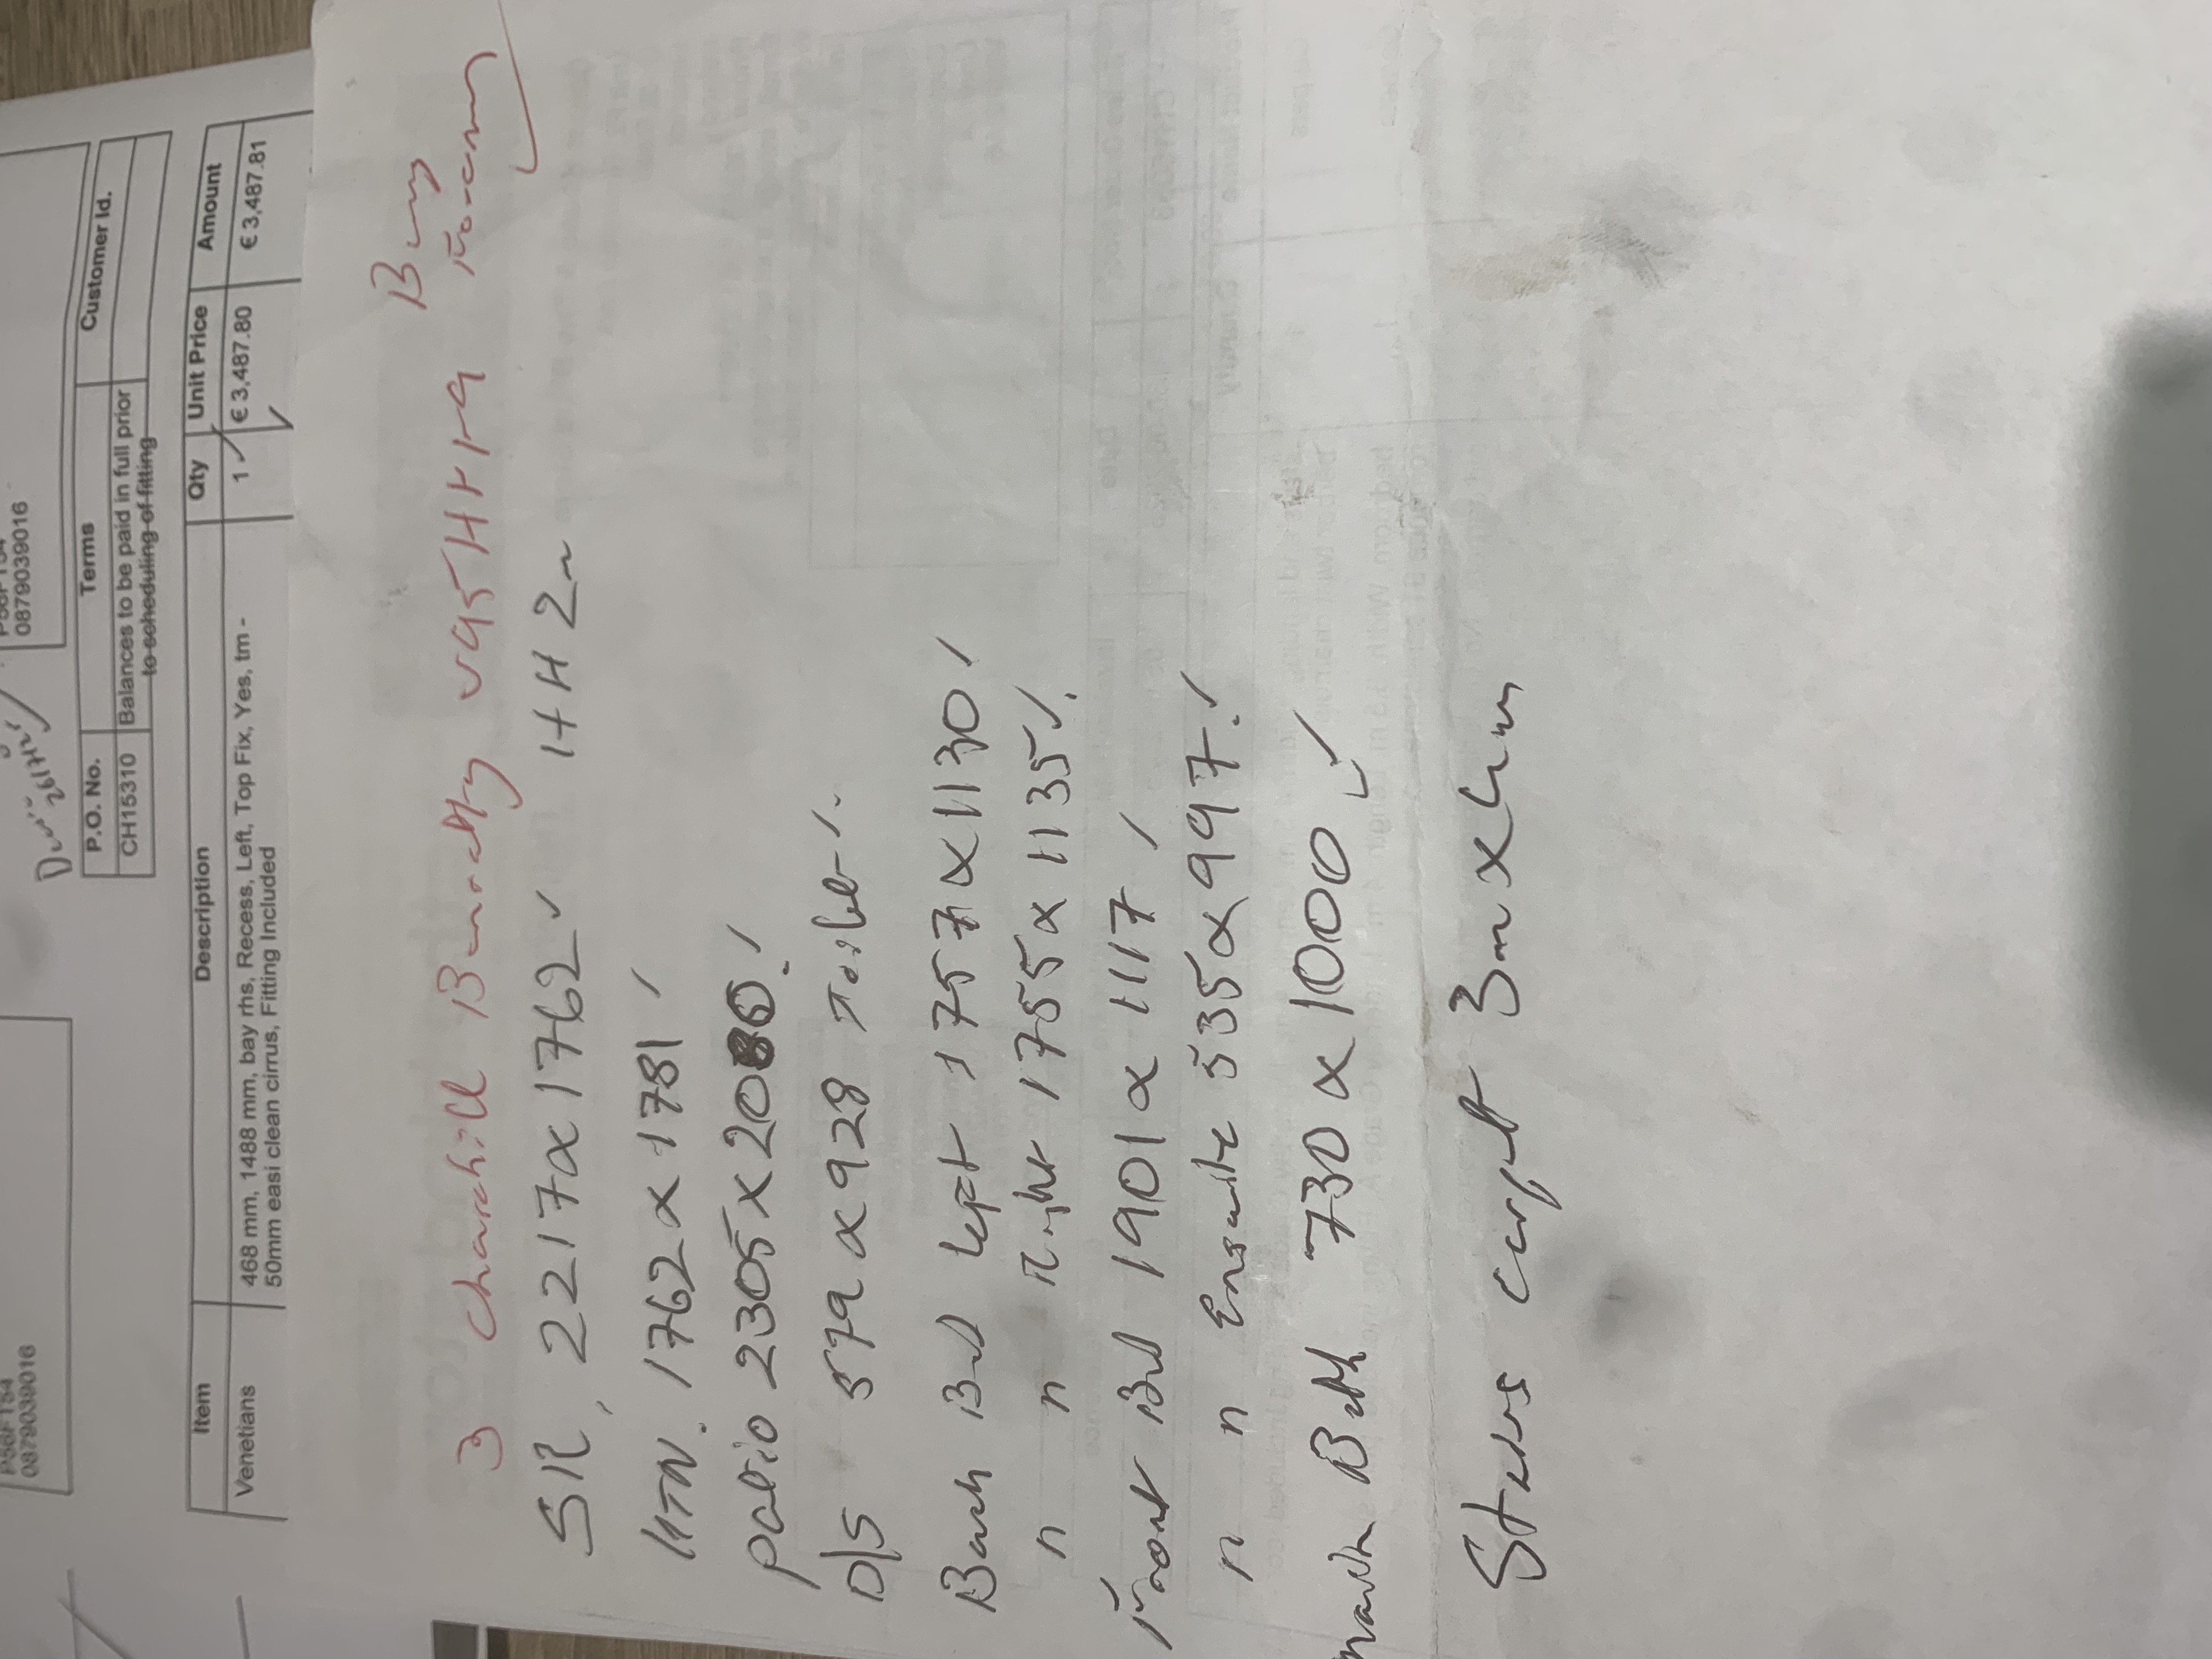 087903​9016
087903​9016
P.O. No. Terms Customer Id.
CH15310 Balances to be paid in full prior
to scheduling of fitting
Item Description Qty Unit Price Amount
Venetians 468 mm, 1488 mm, bay rhs, Recess, Left, Top Fix, Yes, tm - 1 € 3,487.80 € 3,487.81
50mm easi clean cirrus, Fitting Included
3 churchill v95H419
SR, 2217 x 1762 HH 2m
KTN. 1762 x 1781
patio 2305 x 2080
D/S 579 x 928 Toilet
Back Bed Left 1757 x 1130
" " Right 1755 x 1135
Front Bed 1901 x 1117
" " Ensuite 535 x 997
main Bath 730 x 1000
Stairs carpet 3m x 4m